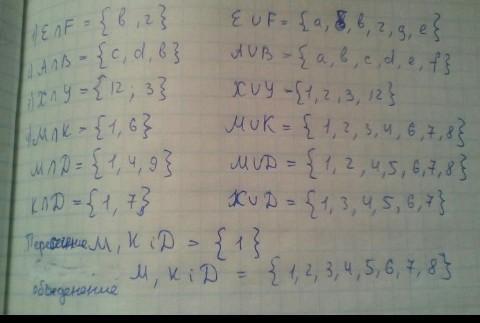 1) E∩F = {в, г} E∪F = {а, б, в, г, д, е}
2) A∩B = {c, d, b} A∪B = {a, b, c, d, e, f}
3) X∩Y = {12; 3} X∪Y = {1, 2, 3, 12}
4) M∩K = {1, 6} M∪K = {1, 2, 3, 4, 6, 7, 8}
M∩D = {1, 4, 9} M∪D = {1, 2, 4, 5, 6, 7, 8}
K∩D = {1, 7} K∪D = {1, 3, 4, 5, 6, 7}
Пересечение M, K i D = {1}
объеденение M, K i D = {1, 2, 3, 4, 5, 6, 7, 8}